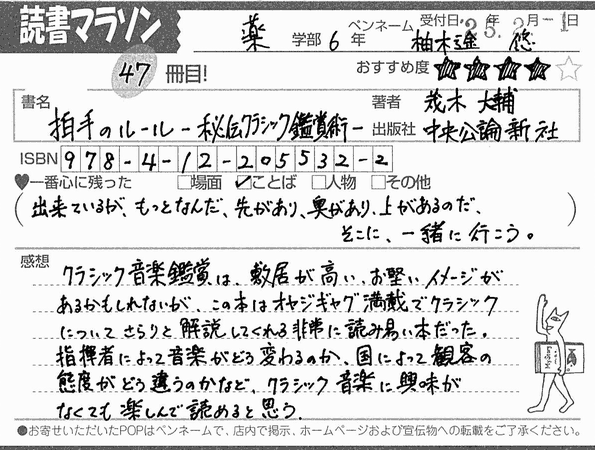 読書マラソン
薬 学部 6 年 ペンネーム 柚木遥 悠 受付日 '25年 2月 1日
47 冊目! おすすめ度 ★★★★☆
書名 著者 茂木 大輔
拍手のルール -秘伝クラシック鑑賞術- 出版社 中央公論新社
ISBN 978-4-12-205532-2
♥一番心に残った □場面 ☑ことば □人物 □その他
(出来ているが、もっとなんだ、先があり、奥があり、上があるのだ、
そこに、一緒に行こう。)
感想
クラシック音楽鑑賞は、敷居が高い、お堅いイメージが
あるかもしれないが、この本はオヤジギャグ満載でクラシック
についてさらりと解説してくれる非常に読み易い本だった。
指揮者によって音楽がどう変わるのか、国によって観客の
態度がどう違うのかなど、クラシック音楽に興味が
なくても楽しんで読めると思う.
●お寄せいただいたPOPはペンネームで、店内で掲示、ホームページおよび宣伝物への転載をご了承ください。